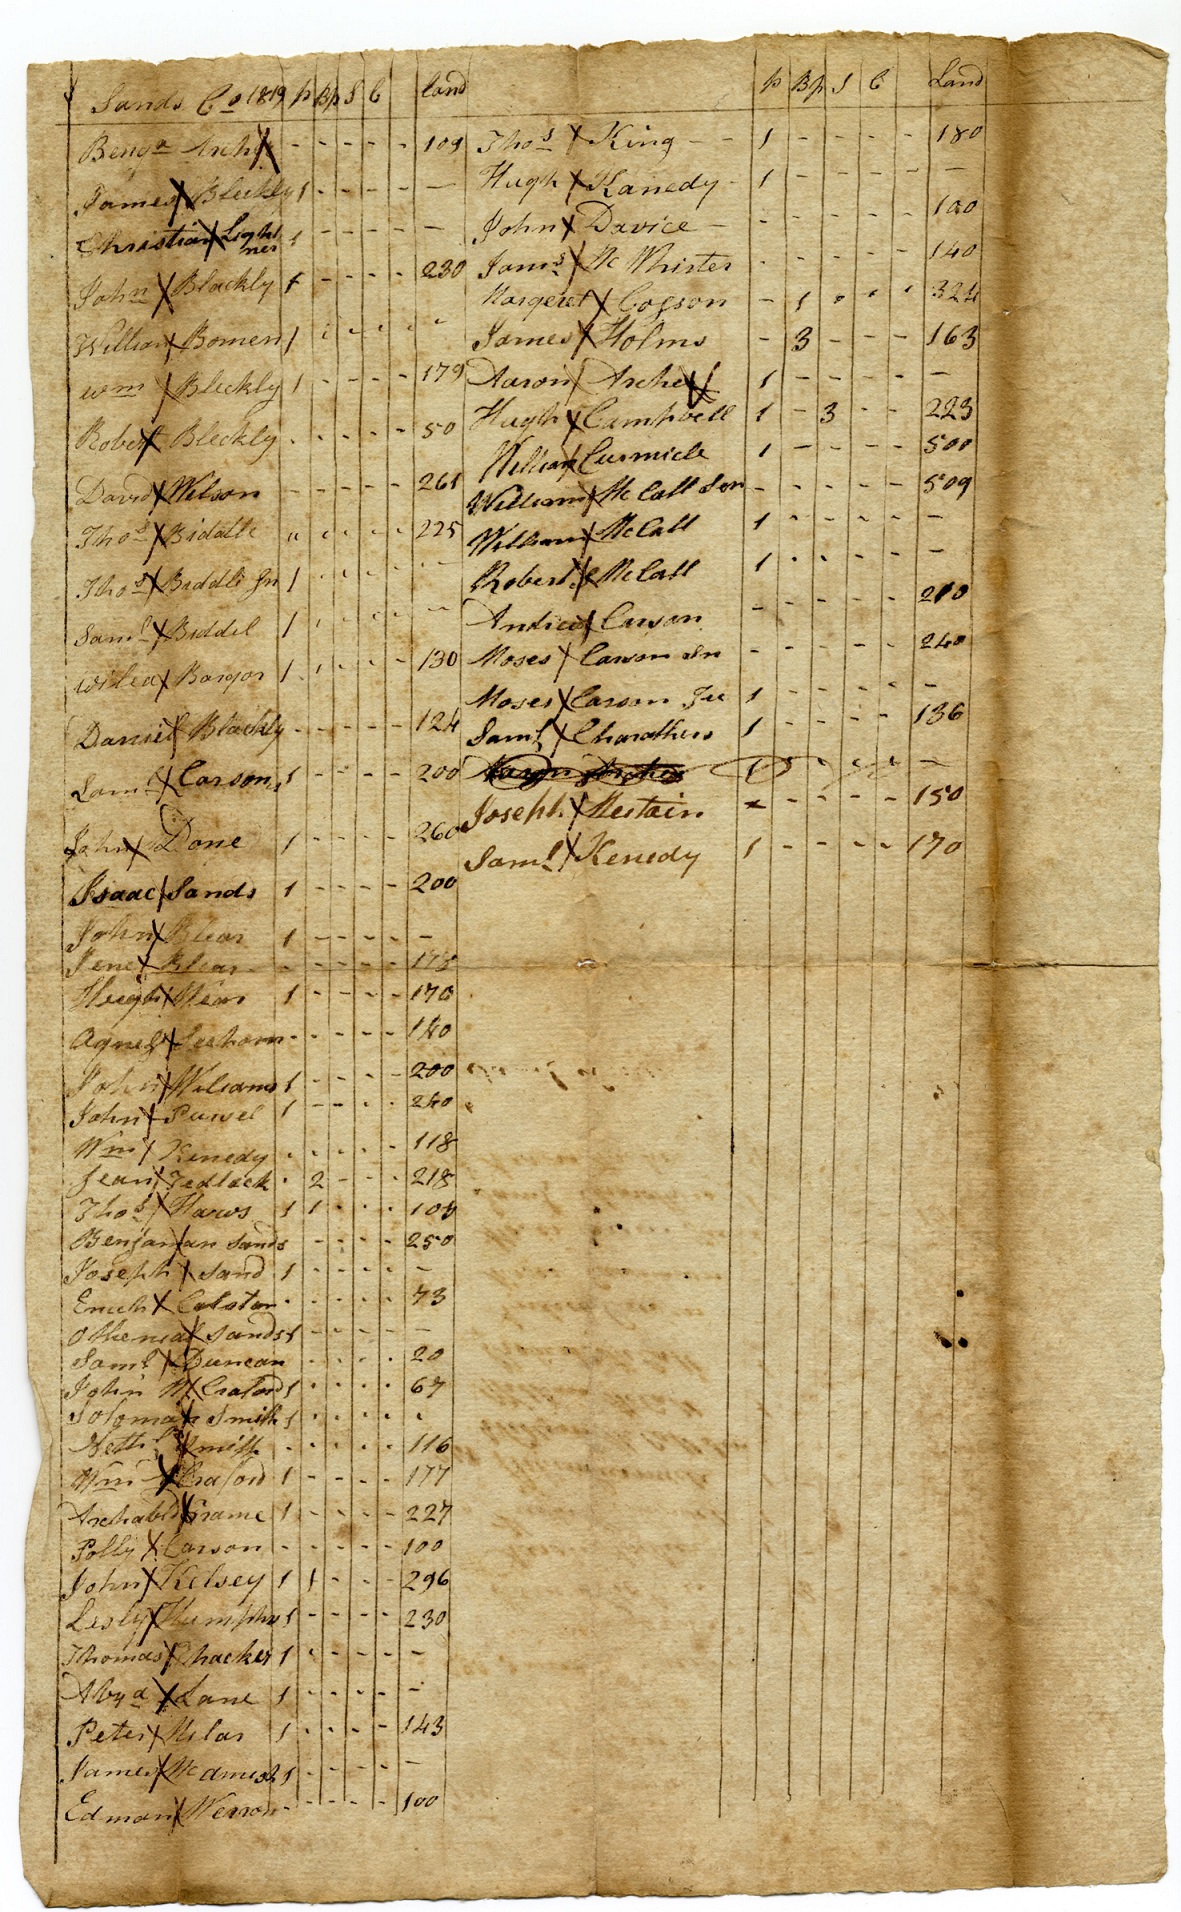 Sands Co 1819 p Bp S C Land
Benja Archer - - - - - 109
James Bleckly 1 - - - - -
Christian Lightner 1 - - - - -
John Blackly 1 - - - - 230
William Bomen 1
Wm Bleckly 1 - - - - 179
Robert Bleckly - - - - - 50
David Wilson - - - - - 261
Thos Biddle - - - - 225
Thos Biddle Jn 1
Saml Biddel 1
Bargor 1 - - - - 130
Daniel Blackly - - - - - 124
Saml Carson 1 - - - - 200
John Done 1 260
Isaac Sands 1 - - - - 200
John Blear 1 - - - - -
Jene Blear - - - - - 178
Heugh Wear 1 - - - - 170
Agnes Seehorn - - - - - 140
John Williams 1 - - - - 200
John Puwel 1 - - - - 240
Wm Kenedy - - - - - 118
Jean Tedlock - 2 - - - 218
Thos Haws 1 1 - - - 108
Benjaman Sands - - - - 250
Joseph Sand 1 - - - - -
Calston - - - - - 73
Othenial Sands 1 - - - - -
Saml Duncan - - - - 20
John McCraford 1 - - - - 67
Soloman Smith 1 - - - -
Smith - - - - - 116
Wm Craford 1 - - - - 177
Archabld Grame 1 - - - - 227
Polly Carson - - - - - 100
John Kelsey 1 1 - - - 296
Lesly Humphrs 1 - - - - 230
Thomas Thacker 1 - - - - -
Lane 1 - - - - -
Peter Milar 1 - - - - 143
James McAmesh 1 - - - - -
Edman Werron - - - - - 100
p Bp S C Land
Thos King - - 1 - - - - 180
Hugh Kanedy - 1 - - - - -
John Davice - - - - - - 100
Jams McWhirter - - - - - 140
Margeret Cogson - 1 - - - 324
James Holms - 3 - - - 163
Aaron Archer 1 - - - - -
Hugh Campbell 1 - 3 - - 223
William Curmicle 1 - - - - 500
William McCall Sen - - - - - 509
William McCall 1 - - - - -
Robert McCall 1 - - - - -
Andrew Carson - - - - - 210
Moses Carson Sn - - - - - 240
Moses Carson Ju 1 - - - - -
Saml Charathers 1 - - - - 136
Aaron Archer 1 - - - - -
Joseph Hestain - - - - 150
Saml Kenedy 1 - - - - 170